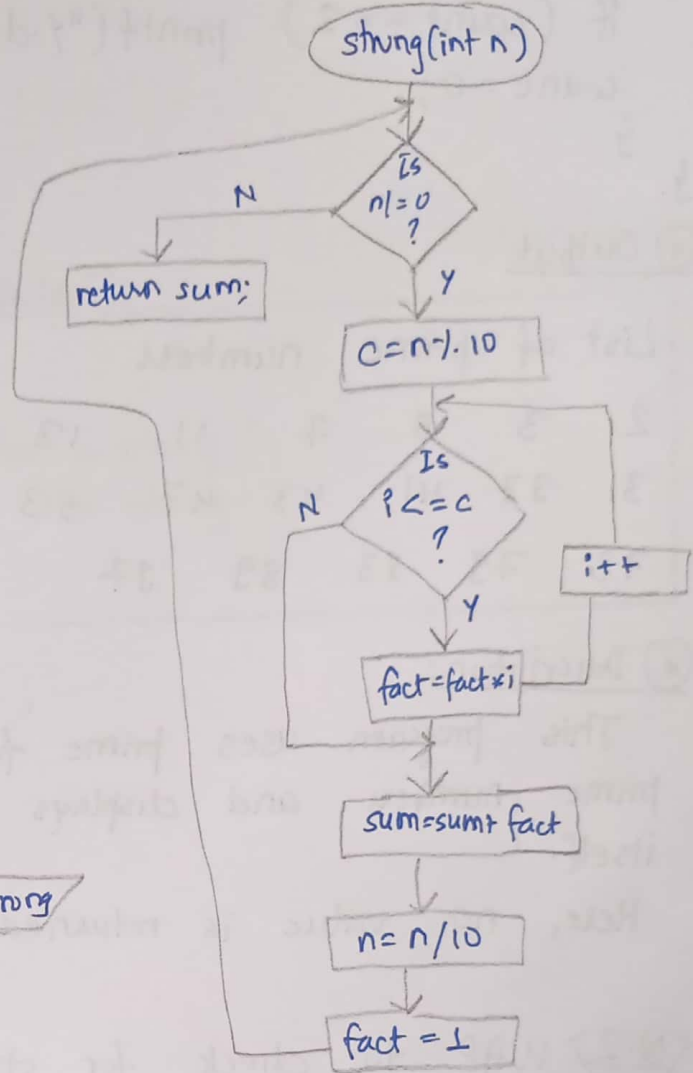 strong(int n)
Is
n!=0
?
N
Y
return sum;
C=n%10
Is
i<=c
?
N
Y
i++
fact=fact*i
sum=sum+ fact
n=n/10
fact=1